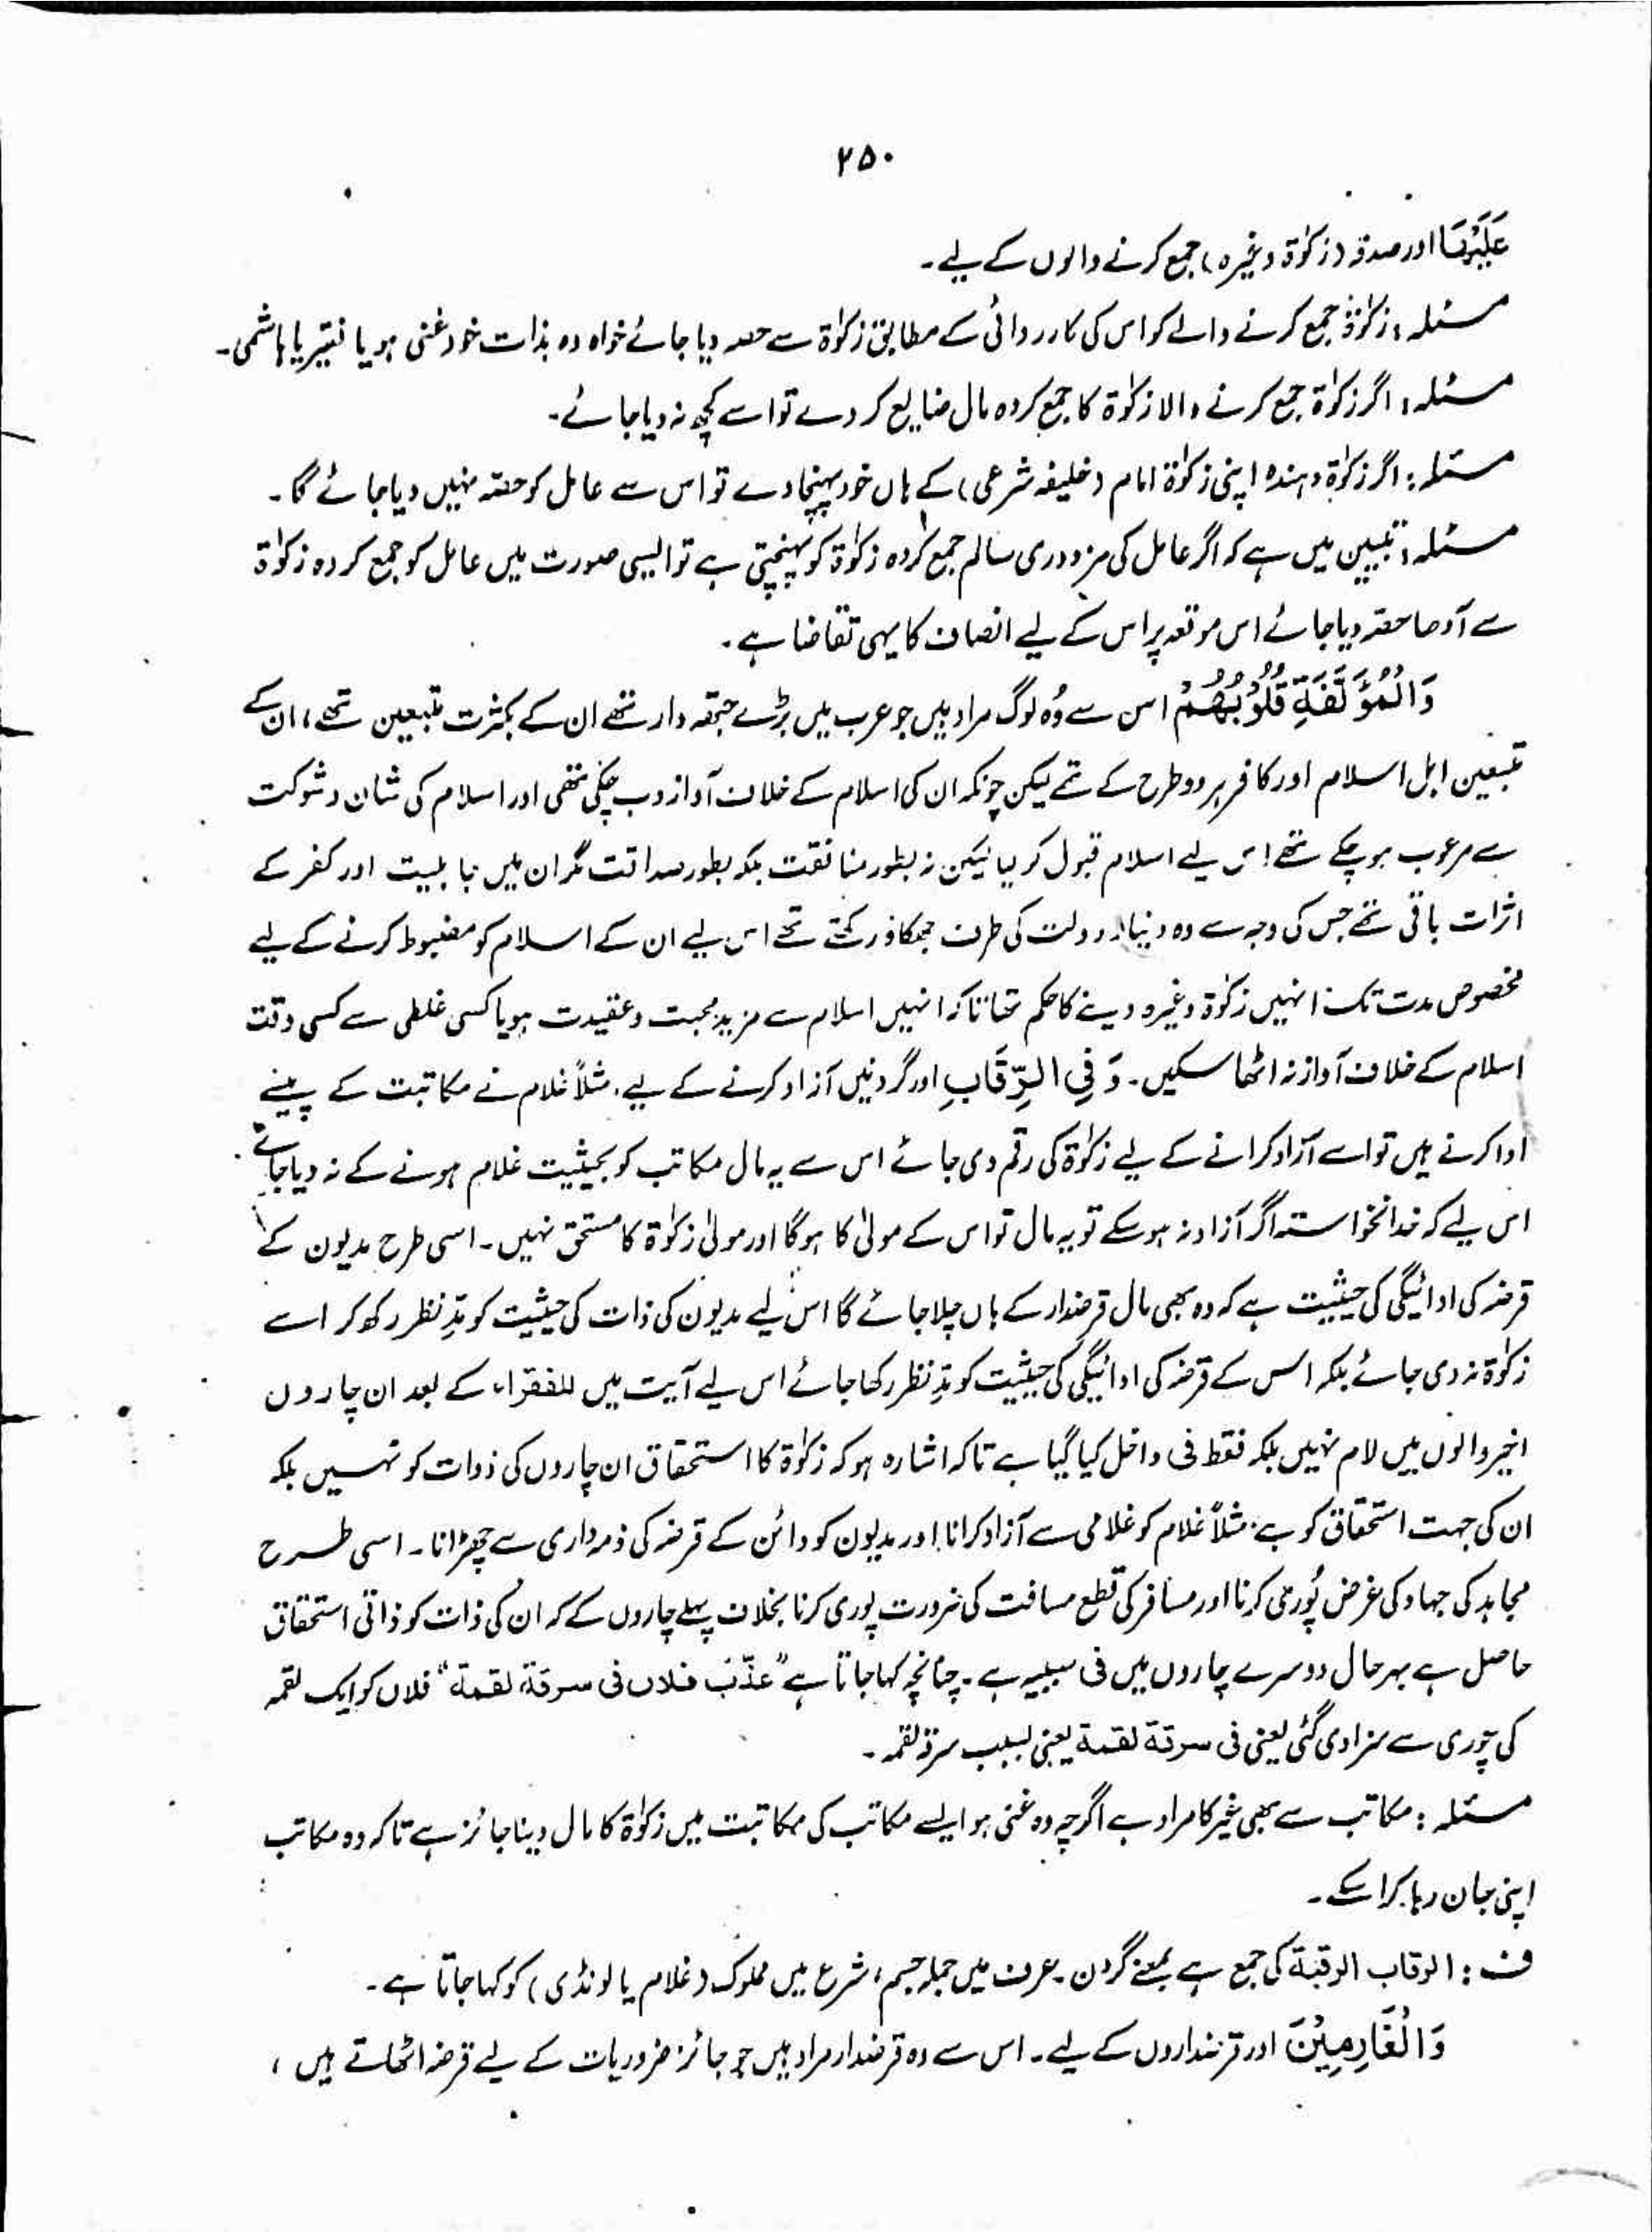 ۲۵۰
عَلَيْهَا اور صدقہ (زکوٰۃ وغیرہ) جمع کرنے والوں کے لیے۔
مسئلہ: زکوٰۃ جمع کرنے والے کو اس کی کارروائی کے مطابق زکوٰۃ سے حصہ دیا جائے خواہ وہ بذات خود غنی ہو یا فقیر یا ہاشمی۔
مسئلہ: اگر زکوٰۃ جمع کرنے والا زکوٰۃ کا جمع کردہ مال ضایع کر دے تو اسے کچھ نہ دیا جائے۔
مسئلہ: اگر زکوٰۃ دہندہ اپنی زکوٰۃ امام (خلیفہ شرعی) کے ہاں خود پہنچا دے تو اس سے عامل کو حصّہ نہیں دیا جائے گا۔
مسئلہ: تبیین میں ہے کہ اگر عامل کی مزدوری سالم جمع کردہ زکوٰۃ کو پہنچتی ہے تو ایسی صورت میں عامل کو جمع کردہ زکوٰۃ
سے آدھا حصّہ دیا جائے اس موقعہ پر اس کے لیے انصاف کا یہی تقاضا ہے۔
وَالْمُؤَلَّفَةِ قُلُوْبُهُمْ اس سے وُہ لوگ مراد ہیں جو عرب میں بڑے جتھہ دار تھے ان کے بکثرت متبعین تھے، ان کے
متبعین اہل اسلام اور کافر ہر دو طرح کے تھے لیکن چونکہ ان کی اسلام کے خلاف آواز دب چکی تھی اور اسلام کی شان و شوکت
سے مرعوب ہو چکے تھے اس لیے اسلام قبول کر لیا لیکن نہ بطور منافقت بلکہ بطور صداقت مگر ان میں جاہلیت اور کفر کے
اثرات باقی تھے جس کی وجہ سے وہ دنیا و دولت کی طرف جھکاؤ رکھتے تھے اس لیے ان کے اسلام کو مضبوط کرنے کے لیے
مخصوص مدت تک انہیں زکوٰۃ وغیرہ دینے کا حکم تھا تاکہ انہیں اسلام سے مزید محبت و عقیدت ہو یا کسی غلطی سے کسی وقت
اسلام کے خلاف آواز نہ اٹھا سکیں۔ وَفِي الرِّقَابِ اور گردنیں آزاد کرنے کے لیے، مثلاً غلام نے مکاتبت کے پیسے
ادا کرنے ہیں تو اسے آزاد کرانے کے لیے زکوٰۃ کی رقم دی جائے اس سے یہ مال مکاتب کو بحیثیت غلام ہونے کے نہ دیا جائے
اس لیے کہ خدانخواستہ اگر آزاد نہ ہو سکے تو یہ مال تو اس کے مولیٰ کا ہوگا اور مولیٰ زکوٰۃ کا مستحق نہیں۔ اسی طرح مدیون کے
قرضہ کی ادائیگی کی حیثیت ہے کہ وہ بھی مال قرضدار کے ہاں چلا جائے گا اس لیے مدیون کی ذات کی حیثیت کو مدِّنظر رکھ کر اسے
زکوٰۃ نہ دی جائے بلکہ اس کے قرضہ کی ادائیگی کی حیثیت کو مدِّنظر رکھا جائے اس لیے آیت میں للفقراء کے بعد ان چاروں
اخیر والوں میں لام نہیں بلکہ فقط فی داخل کیا گیا ہے تاکہ اشارہ ہو کہ زکوٰۃ کا استحقاق ان چاروں کی ذوات کو نہیں بلکہ
ان کی جہت استحقاق کو ہے، مثلاً غلام کو غلامی سے آزاد کرانا اور مدیون کو دائن کے قرضہ کی ذمہ داری سے چھڑانا۔ اسی طرح
مجاہد کی جہاد کی غرض پُوری کرنا اور مسافر کی قطع مسافت کی ضرورت پوری کرنا بخلاف پہلے چاروں کے کہ ان کی ذات کو ذاتی استحقاق
حاصل ہے بہرحال دوسرے چاروں میں فی سببیہ ہے۔ چنانچہ کہا جاتا ہے "عذّب فلان فی سرقة لقمة" فلاں کو ایک لقمہ
کی چوری سے سزا دی گئی یعنی فی سرقة لقمة یعنی بسبب سرقۃ لقمہ۔
مسئلہ: مکاتب سے بھی غیر کا مراد ہے اگرچہ وہ غنی ہو ایسے مکاتب کی مکاتبت میں زکوٰۃ کا مال دینا جائز ہے تاکہ وہ مکاتب
اپنی جان رہا کرا سکے۔
ف: الرقاب الرقبة کی جمع ہے بمعنے گردن۔ عرف میں جملہ جسم، شرع میں مملوک (غلام یا لونڈی) کو کہا جاتا ہے۔
وَالْغَارِمِيْنَ اور قرضداروں کے لیے۔ اس سے وہ قرضدار مراد ہیں جو جائز ضروریات کے لیے قرضہ اٹھاتے ہیں،